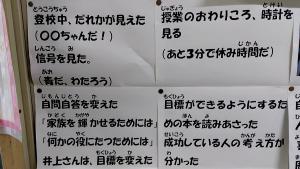 とうこうちゅう
登校中、だれかが見えた
(〇〇ちゃんだ!)
しんごう み
信号を見た。
あお
(青だ、わたろう)
じゅぎょう とけい
授業のおわりころ、時計を
見る
(あと3分で休み時間だ)
じもんじとう か
自問自答を変えた
かぞく かがや
「家族を輝かせるためには」
なに やく
「何かの役にたつためには」
もくひょう か
井上さんは、目標を変えた
もくひょう
目標ができるようにするた
めの本を読みあさった
せいこう かんが かた
成功している人の考え方が
わ
分かった